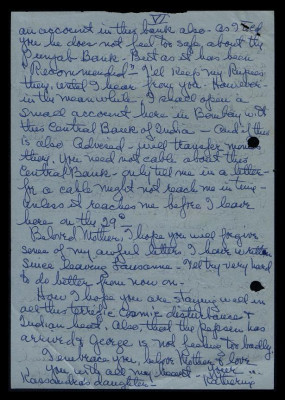 VI
an account in this bank also - as I told
you he does not feel too safe about the
Punjab Bank - But as it has been
"Recommended" - I'll keep my Rupees
there until I hear from you. However -
in the meanwhile - I shall open a
small account here in Bombay with
this Central Bank of India - And if this
is also Advised - will transfer monies
there. You need not cable about this
Central Bank - only tell me in a letter -
for a cable might not reach me in time -
unless it reaches me before I leave
here on the 29th
Beloved Mother, I hope you will forgive
some of my awful letters I have written
since leaving Lausanne - I'll try very hard
to do better from now on -
How I hope you are staying well in
all this terrific cosmic disturbance &
Indian heat. Also that the has
arrived & George is not feeling too badly.
I embrace you, before Mother & love
you with all my heart - your
Kassandra's daughter - Katherine